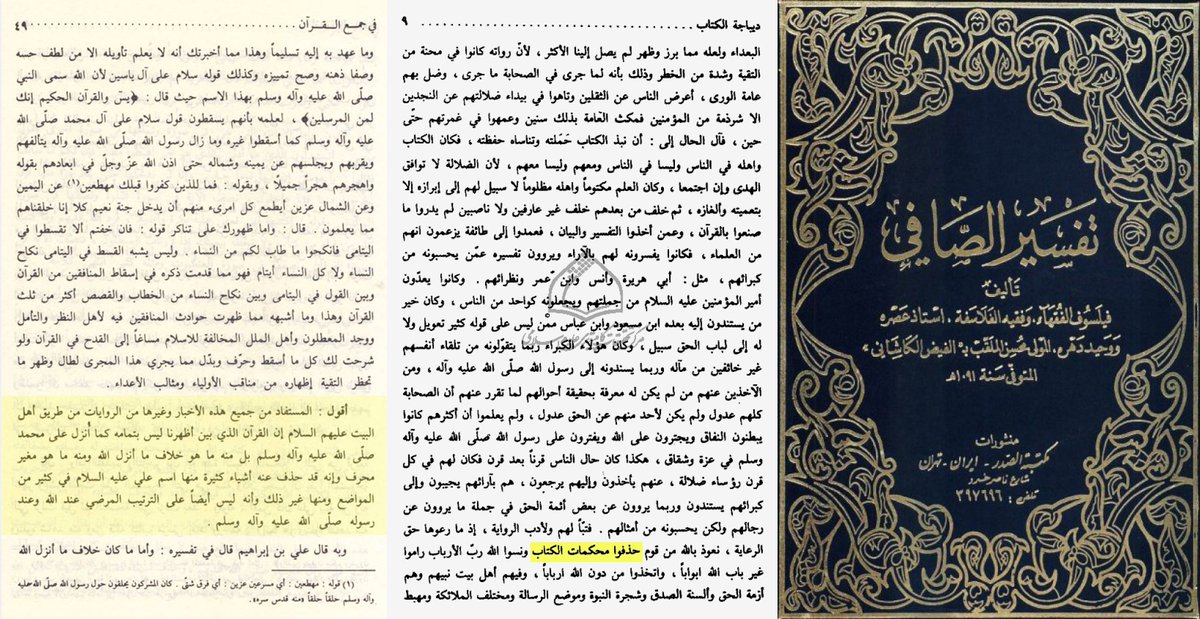 تفسير الصافي
تأليف
فيلسوف الفقهاء، وفقيه الفلاسفة، استاذ عصره
ووحيد دهره، المولى محسن الملقب بـ «الفيض الكاشاني»
المتوفى سنة ١٠٩١هـ
منشورات
مكتبة الصدر - ايران - تهران
شارع ناصر خسرو
تلفن : ٣٩٧٦٩٦
ديباجة الكتاب ........ ٩
البعداء ولعله مما برز وظهر لم يصل إلينا الأكثر ، لأنّ رواته كانوا في محنة من
التقية وشدة من الخطر وذلك بأنه لما جرى في الصحابة ما جرى ، وضل بهم
عامة الورى ، أعرض الناس عن الثقلين وتاهوا في بيداء ضلالتهم عن النجدين
الا شرذمة من المؤمنين فمكث العامة بذلك سنين وعمهوا في غمرتهم حتّى
حين ، فآل الحال إلى : أن نبذ الكتاب حَمَلته وتناساه حفظته ، فكان الكتاب
واهله في الناس وليسا في الناس ومعهم وليسا معهم ، لأن الضلالة لا توافق
الهدى وإن اجتمعا ، وكان العلم مكتوماً واهله مظلوماً لا سبيل لهم إلى إبرازه إلا
بتعميته وألغازه ، ثم خلف من بعدهم خلف غير عارفين ولا ناصبين لم يدروا ما
صنعوا بالقرآن ، وعمن أخذوا التفسير والبيان ، فعمدوا إلى طائفة يزعمون انهم
من العلماء ، فكانوا يفسرونه لهم بالآراء ويروون تفسيره عمّن يحسبونه من
كبرائهم ، مثل : أبي هريرة وأنس وابن عمر ونظرائهم . وكانوا يعدّون
أمير المؤمنين عليه السلام من جملتهم ويجعلونه كواحد من الناس ، وكان خير
من يستندون إليه بعده ابن مسعود وابن عباس ممّن ليس على قوله كثير تعويل ولا
له إلى لباب الحق سبيل ، وكان هؤلاء الكبراء ربما يتقولونه من تلقاء أنفسهم
غير خائفين من مآله وربما يسندونه إلى رسول الله صلّى الله عليه وآله ، ومن
الآخذين عنهم من لم يكن له معرفة بحقيقة أحوالهم لما تقرر عنهم أن الصحابة
كلهم عدول ولم يكن لأحد منهم عن الحق عدول ، ولم يعلموا أن أكثرهم كانوا
يبطنون النفاق ويجترون على الله ويفترون على رسول الله صلّى الله عليه وآله
وسلم في عزة وشقاق ، هكذا كان حال الناس قرناً بعد قرن فكان لهم في كل
قرن رؤساء ضلالة ، عنهم يأخذون وإليهم يرجعون ، هم بآرائهم يجيبون وإلى
كبرائهم يستندون وربما يروون عن بعض أئمة الحق في جملة ما يروون عن
رجالهم ولكن يحسبونه من أمثالهم . فتبّاً لهم ولأدب الرواية ، إذ ما رعوها حق
الرعاية ، نعوذ بالله من قوم حذفوا محكمات الكتاب ونسوا الله ربّ الأرباب راموا
غير باب الله ابواباً ، واتخذوا من دون الله ارباباً ، وفيهم أهل بيت نبيهم وهم
أزمة الحق وألسنة الصدق وشجرة النبوة وموضع الرسالة ومختلف الملائكة ومهبط
في جمع القرآن ........ ٤٩
وما عهد به إليه تسليماً وهذا مما أخبرتك أنه لا يعلم تأويله الا من لطف حسه
وصفا ذهنه وصح تمييزه وكذلك قوله سلام على آل ياسين لأن الله سمى النبي
صلّى الله عليه وآله وسلم بهذا الاسم حيث قال : ﴿يسۤ والقرآن الحكيم إنك
لمن المرسلين﴾ ، لعلمه بأنهم يسقطون قول سلام على آل محمد صلّى الله
عليه وآله وسلم كما أسقطوا غيره وما زال رسول الله صلّى الله عليه وآله يتألفهم
ويقربهم ويجلسهم عن يمينه وشماله حتى اذن الله عزّ وجلّ في ابعادهم بقوله
واهجرهم هجراً جميلاً ، وبقوله : فما للذين كفروا قبلك مهطعين(١) عن اليمين
وعن الشمال عزين أيطمع كل امرىء منهم أن يدخل جنة نعيم كلا إنا خلقناهم
مما يعلمون . قال : واما ظهورك على تناكر قوله : فان خفتم ألا تقسطوا في
اليتامى فانكحوا ما طاب لكم من النساء . وليس يشبه القسط في اليتامى نكاح
النساء ولا كل النساء أيتام فهو مما قدمت ذكره في إسقاط المنافقين من القرآن
وبين القول في اليتامى وبين نكاح النساء من الخطاب والقصص أكثر من ثلث
القرآن وهذا وما أشبهه مما ظهرت حوادث المنافقين فيه لأهل النظر والتأمل
ووجد المعطلون وأهل الملل المخالفة للاسلام مساغاً إلى القدح في القرآن ولو
شرحت لك كل ما أسقط وحرّف وبدّل مما يجري هذا المجرى لطال وظهر ما
تحظر التقية إظهاره من مناقب الأولياء ومثالب الأعداء .
أقول : المستفاد من جميع هذه الأخبار وغيرها من الروايات من طريق أهل
البيت عليهم السلام إن القرآن الذي بين أظهرنا ليس بتمامه كما أُنزل على محمد
صلّى الله عليه وآله وسلم بل منه ما هو خلاف ما أنزل الله ومنه ما هو مغير
محرف وإنه قد حذف عنه أشياء كثيرة منها اسم علي عليه السلام في كثير من
المواضع ومنها غير ذلك وأنه ليس أيضاً على الترتيب المرضي عند الله وعند
رسوله صلّى الله عليه وآله وسلم .
وبه قال علي بن إبراهيم قال في تفسيره : وأما ما كان خلاف ما أنزل الله
(١) قوله : مهطعين : أي مسرعين عزين : أي فرق شتى . كان المشركون يحلقون حول رسول الله صلّى الله عليه
وآله وسلم حلقاً حلقاً «منه قدس سره».